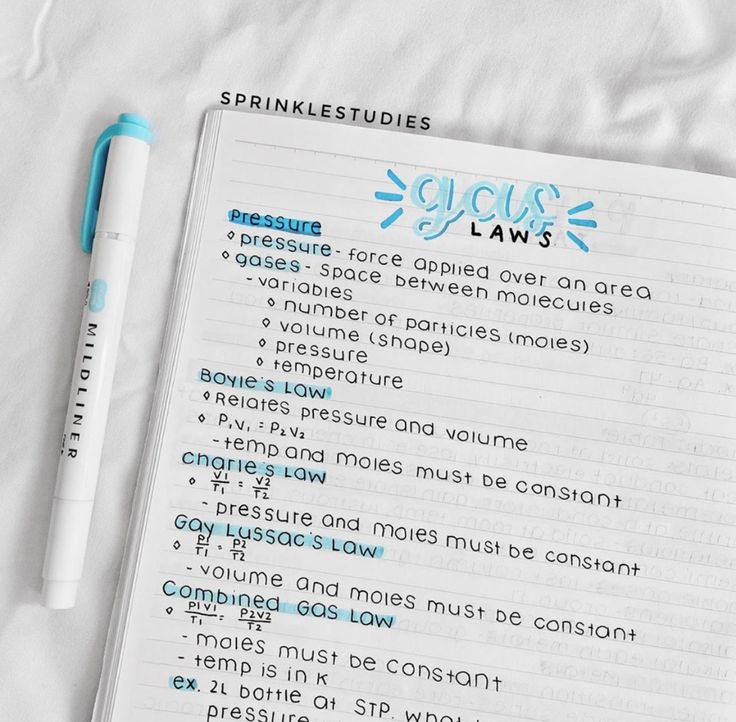 SPRINKLESTUDIES
gas
LAWS
Pressure
◇ pressure - force applied over an area
◇ gases - space between molecules
- variables
◇ number of particles (moles)
◇ volume (shape)
◇ pressure
◇ temperature
Boyle's Law
◇ Relates pressure and volume
◇ P₁V₁ = P₂V₂
- temp and moles must be constant
Charle's Law
◇ V1/T1 = V2/T2
- pressure and moles must be constant
Gay Lussac's Law
◇ P1/T1 = P2/T2
- volume and moles must be constant
Combined Gas Law
◇ P1V1/T1 = P2V2/T2
- moles must be constant
- temp is in K
ex. 2L bottle at STP. what
pressure
MILDLINER